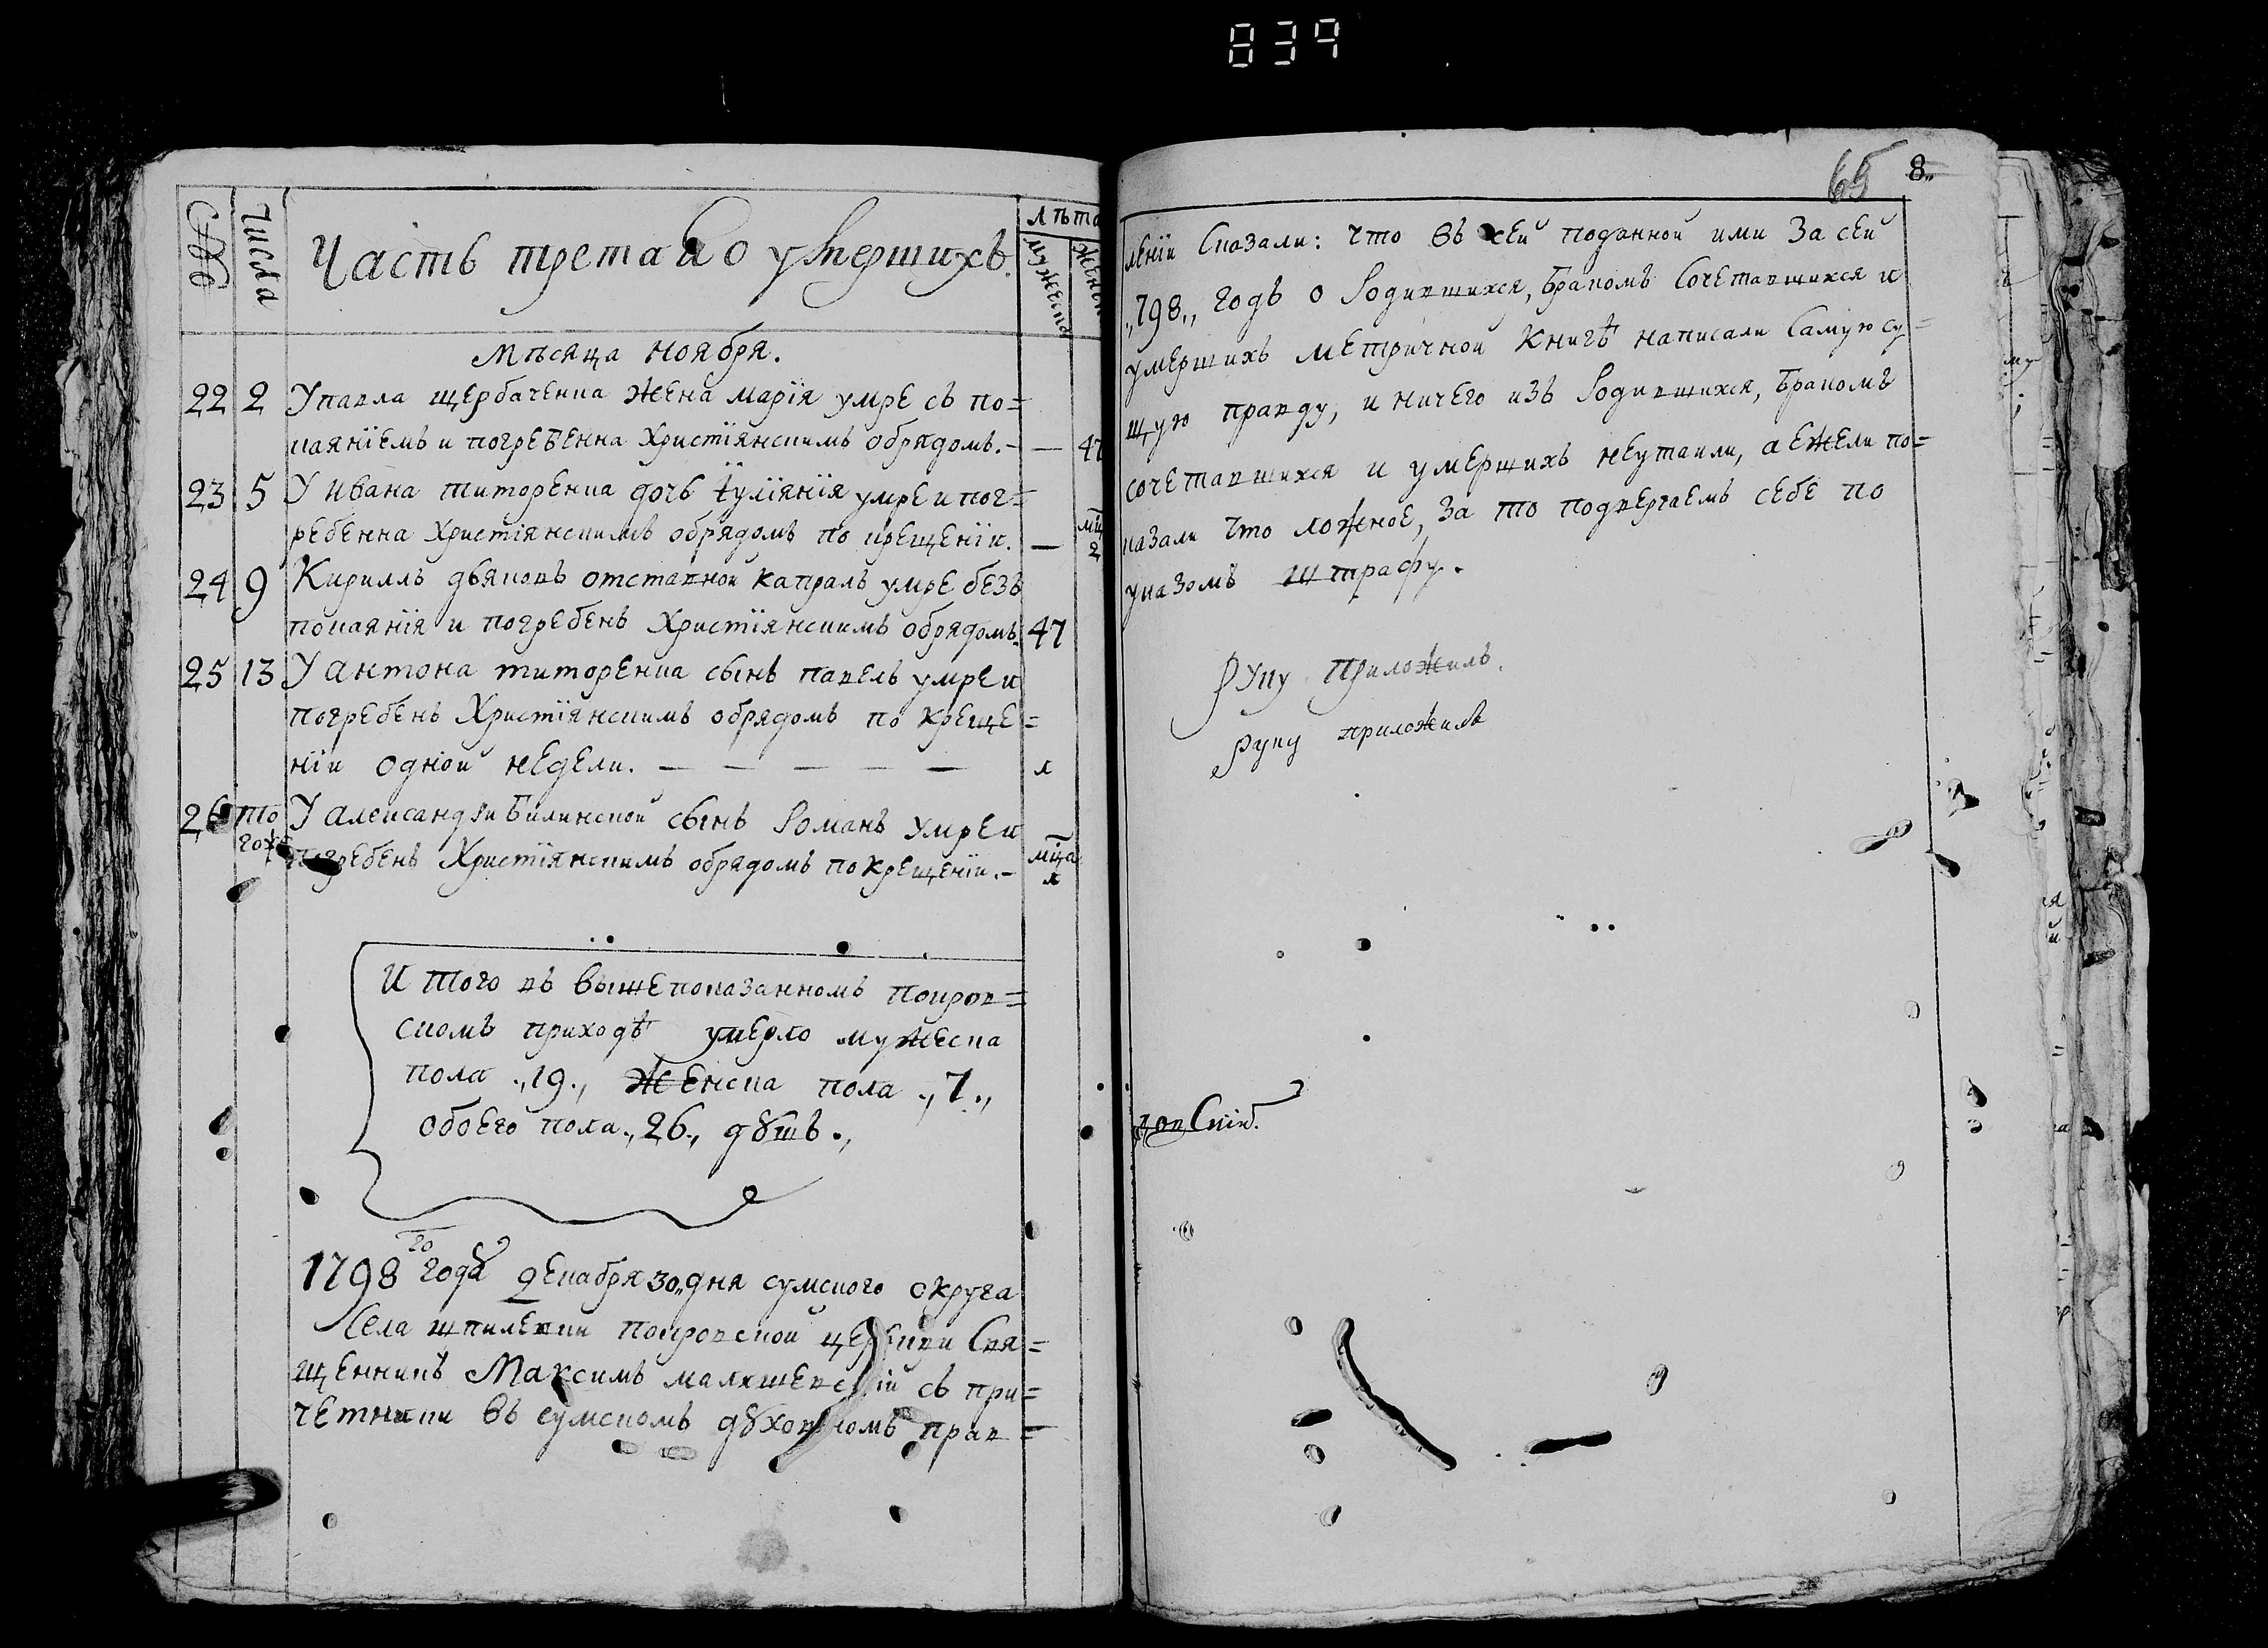 839
Числа
Часть третая о умершихъ.
лѣта
Мужеска
Женск
Мѣсяца ноября.
22 2 У павла щербаченка жена марїя умре съ по=
каянїемъ и погребенна Христїянскимъ обрядомъ. — — 47
23 5 У ивана титоренка дочь їулїянїя умре и пог=
ребенна Христїянскимъ обрядомъ по крещенїи. — мц 2
24 9 Кириллъ дьяковъ отставной капралъ умре безъ
покаянїя и погребенъ Христїянскимъ обрядомъ. 47
25 13 У антона титоренка сынъ павелъ умре и
погребенъ Христїянскимъ обрядомъ по креще=
нїи одной недели. — — — — —
26 того ж У александри Билинской сынъ Романъ умре и
погребенъ Христїянскимъ обрядомъ по крещенїи. — мца
И того въ вышепоказанномъ покров=
скомъ приходѣ умерло мужеска
пола „19„ женска пола „7„
обоего пола „26„ дꙋшъ.
1798го годꙋ декабря 30„ дня сумского округа
села шпилевки покровской церкви Свя=
щенникъ Максимъ малишевскїй съ при=
четники въ сумскомъ дꙋховномъ прав=
65 8„
ленїи Сказали: что въ сей поданной ими за сей
„798„ годъ о Родившихся, бракомъ Сочетавшихся и
умершихъ метричной книгѣ написали Самую су=
щую правду, и ничего изъ Родившихся, бракомъ
сочетавшихся и умершихъ неутаили, а ежели по=
казали что ложное, за то подвергаемъ себе по
указомъ штрафу.
руку приложилъ.
руку приложилъ